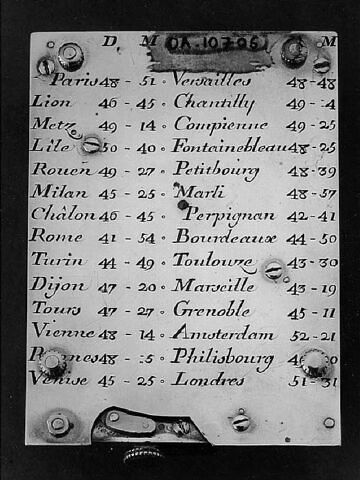 D M OA.10795 M
Paris 48 - 51 ∘ Versailles 48 - 48
Lion 46 - 45 ∘ Chantilly 49 - 4
Metz 49 - 14 ∘ Compienne 49 - 25
Lile 50 - 40 ∘ Fontainebleau 48 - 25
Rouen 49 - 27 ∘ Petitbourg 48 - 39
Milan 45 - 25 ∘ Marli 48 - 57
Châlon 46 - 45 ∘ Perpignan 42 - 41
Rome 41 - 54 ∘ Bourdeaux 44 - 50
Turin 44 - 49 ∘ Toulouze 43 - 30
Dijon 47 - 20 ∘ Marseille 43 - 19
Tours 47 - 27 ∘ Grenoble 45 - 11
Vienne 48 - 14 ∘ Amsterdam 52 - 21
48 - ∘ Philisbourg
Venise 45 - 25 ∘ Londres 51 - 31